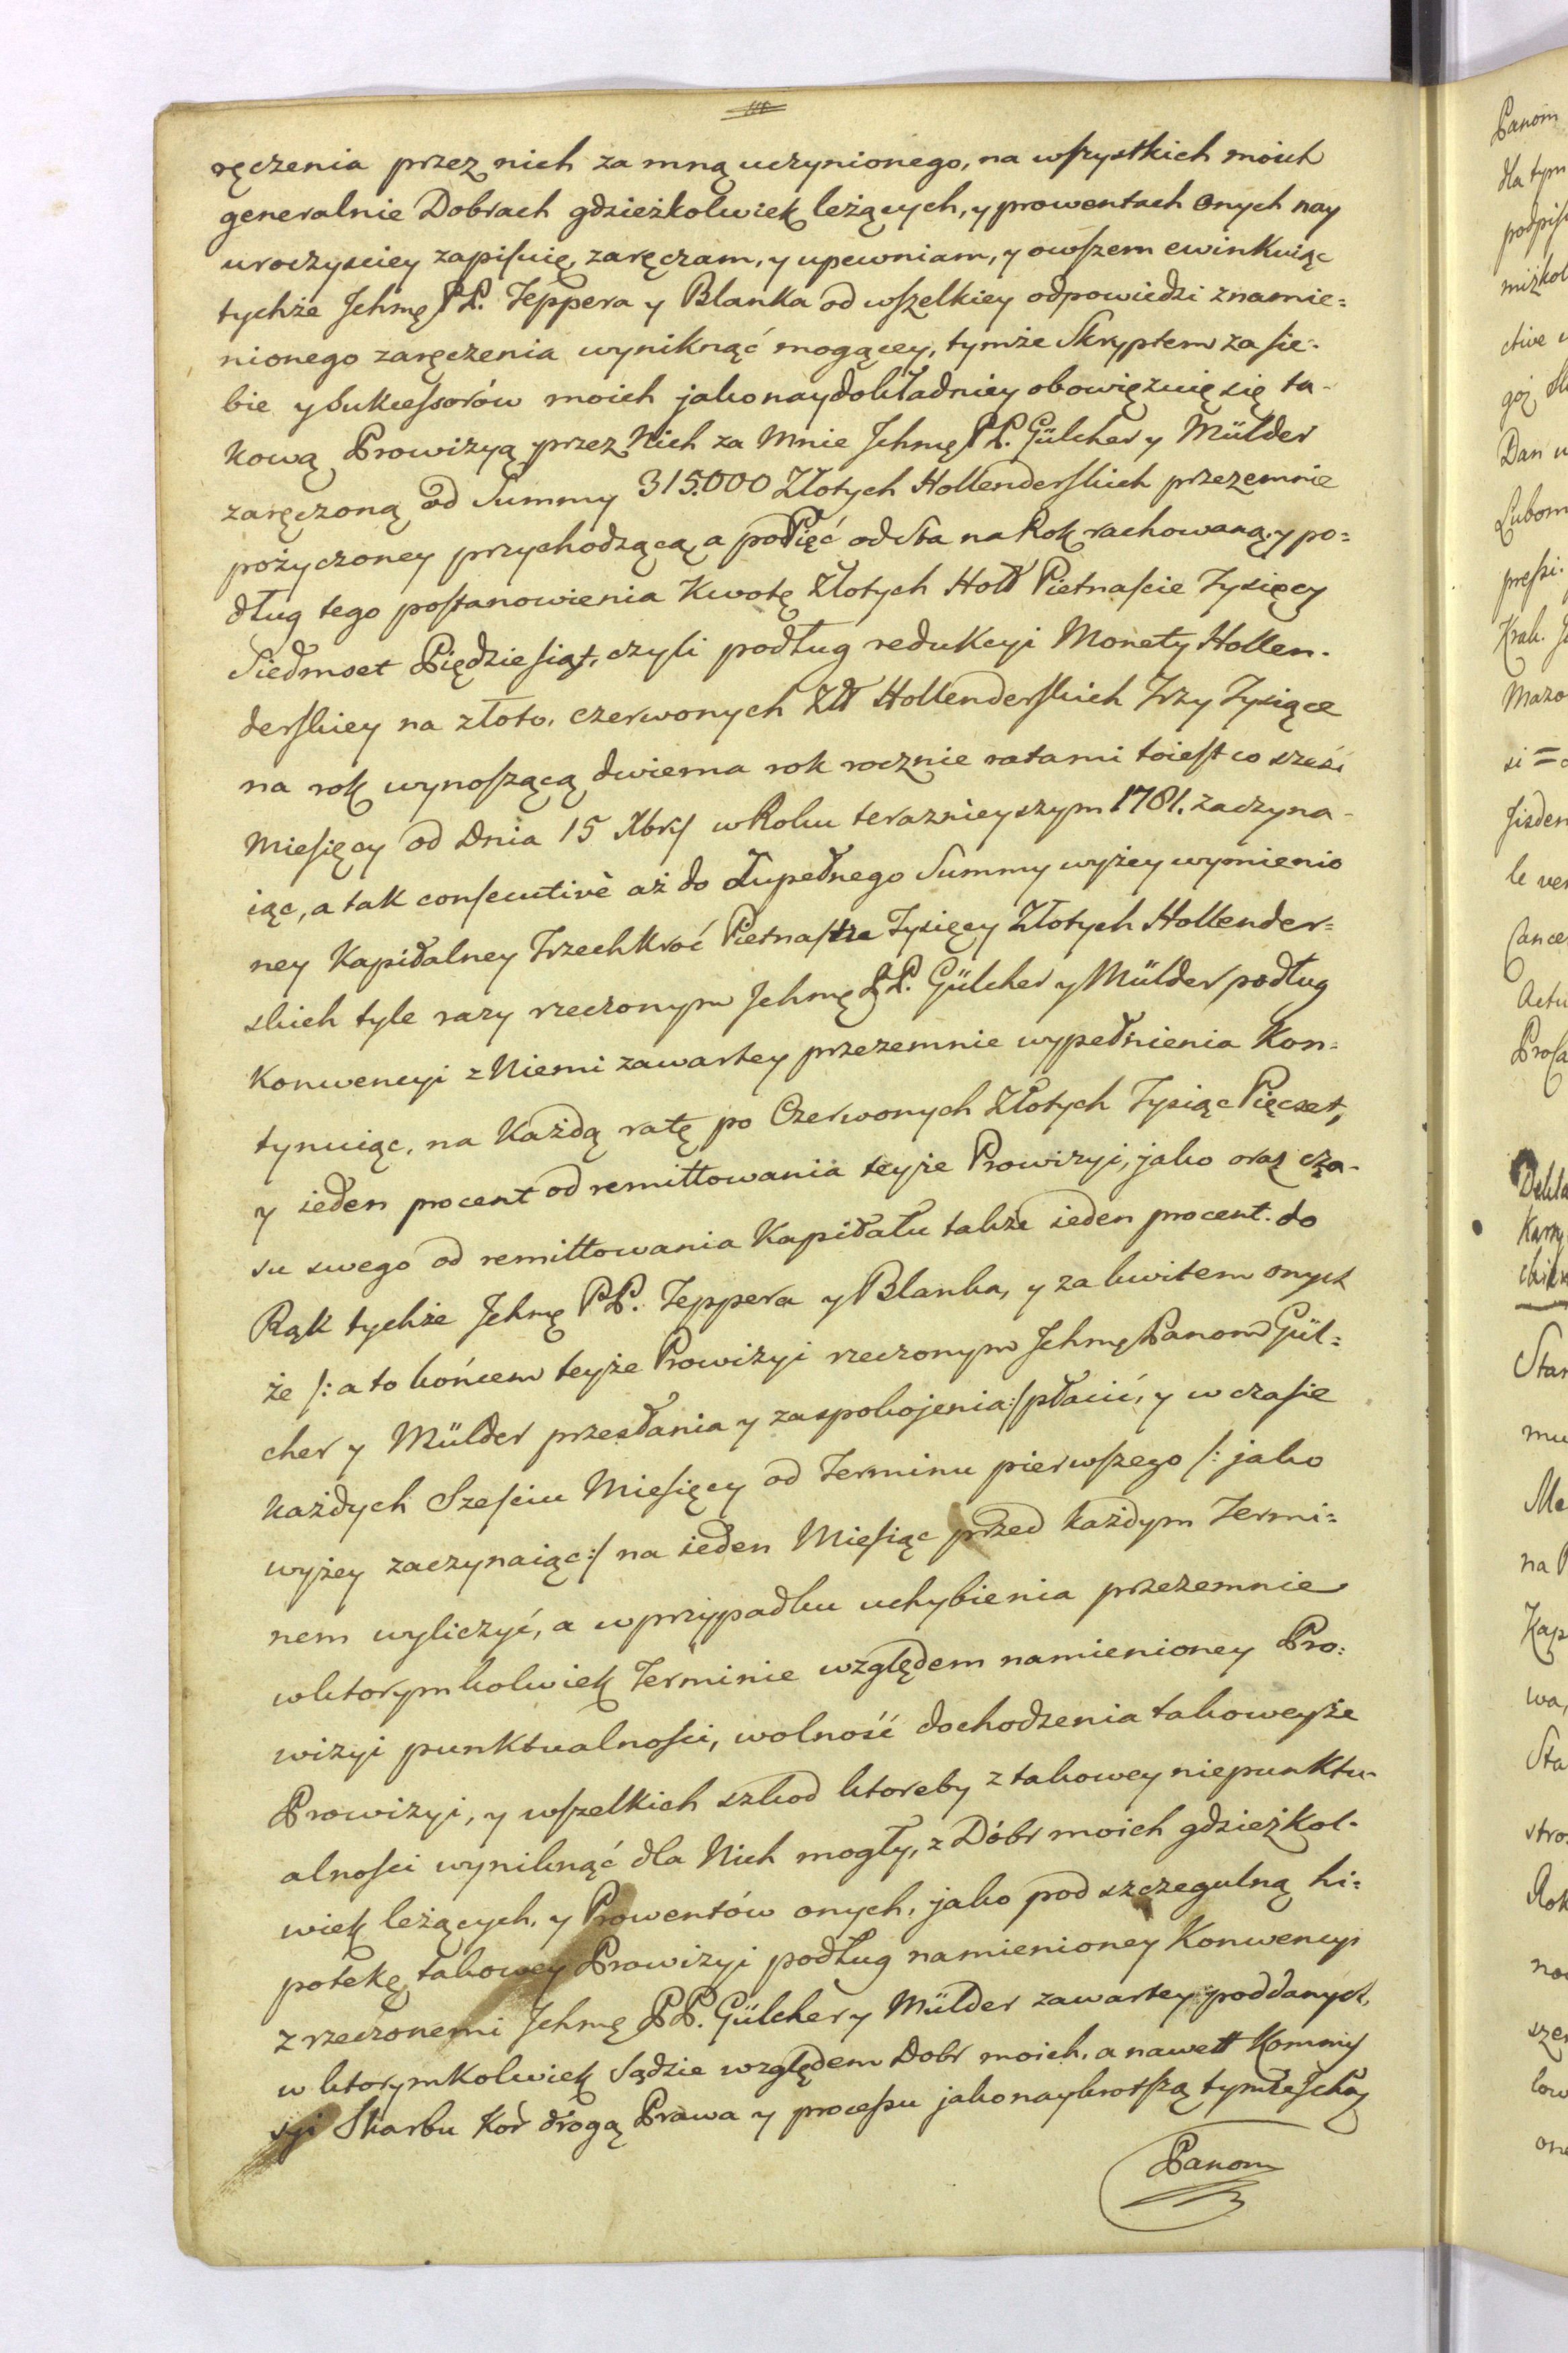 ręczenia przez nich za mną uczynionego, na wszystkich moich
generalnie Dobrach gdzieżkolwiek leżących, y prowentach onych nay
uroczysciey zapisuię, zaręczam, y upewniam, y owszem ewinkuiąc
tychże Jchmę PP. Teppera y Blanka od wszelkiey odpowiedzi znamie=
nionego zaręczenia wyniknąć mogącey, tymże Skryptem za sie=
bie y Sukcessorów moich jako naydokładniey obowięzuię się ta-
kową Prowizyą przez Nich za Mnie Jchmę PP. Gülcher y Mülder
zaręczoną od Summy 315.000 Złotych Hollenderskich przezemnie
pożyczoney przychodzącą, a po Pięć od Sta na Rok rachowaną, y po=
dług tego postanowienia Kwotę Złotych Holl Pietnascie Tysięcy
Siedmset Piędziesiąt, czyli podług redukcyi Monety Hollen-
derskiey na złoto, czerwonych Złł Hollenderskich Trzy Tysiące
na rok wynoszącą, dwiema rok rocznie ratami toiest co sześć
Miesięcy od Dnia 15 Xbris w Roku teraznieyszym 1781. zaczyna-
iąc, a tak consecutivè aż do Zupełnego Summy wyżey wymienio
ney Kapidalney Trzechkroć Pietnastu Tysięcy Złotych Hollender=
skich tyle razy rzeczonym Jchmę PP. Gülcher y Mülder podług
Konwencyi z Niemi zawartey przezemnie wypełnienia Kon=
tynuiąc, na każdą ratę po Czerwonych Złotych Tysiąc Pięcset,
y ieden procent od remittowania teyże Prowizyi, jako oraz cza-
su swego od remittowania Kapidału także ieden procent. do
Rąk tychże Jchmę PP. Teppera y Blanka, y za kwitem onych
że /: a to końcem teyże Prowizyi rzeczonym Jchmę Panom Gül=
cher y Mülder przesłania y zaspokojenia :/ płacić, y w czasie
każdych Szesciu Miesięcy od Terminu pierwszego /: jako
wyżey zaczynaiąc :/ na ieden Miesiąc przed każdym Termi=
nem wyliczyć, a w przypadku uchybienia przezemnie
w ktorymkolwiek Terminie względem namienioney Pro=
wizyi punktualnosci, wolność dochodzenia takoweyże
Prowizyi, y wszelkich szkod ktoreby z takowey niepunktu-
alnosci wyniknąć dla Nich mogły, z Dóbr moich gdzieżkol-
wiek leżących, y Prowentów onych, jako pod szczegulną hi=
potekę takowey Prowizyi podług namienioney Konwencyi
z rzeczonemi Jchmę PP. Gülcher y Mülder zawartey poddanych,
w ktorymkolwiek Sądzie względem Dobr moich, a nawett Kommis
syi Skarbu Kor drogą Prawa y processu jako naykrotszą tymże
Panom